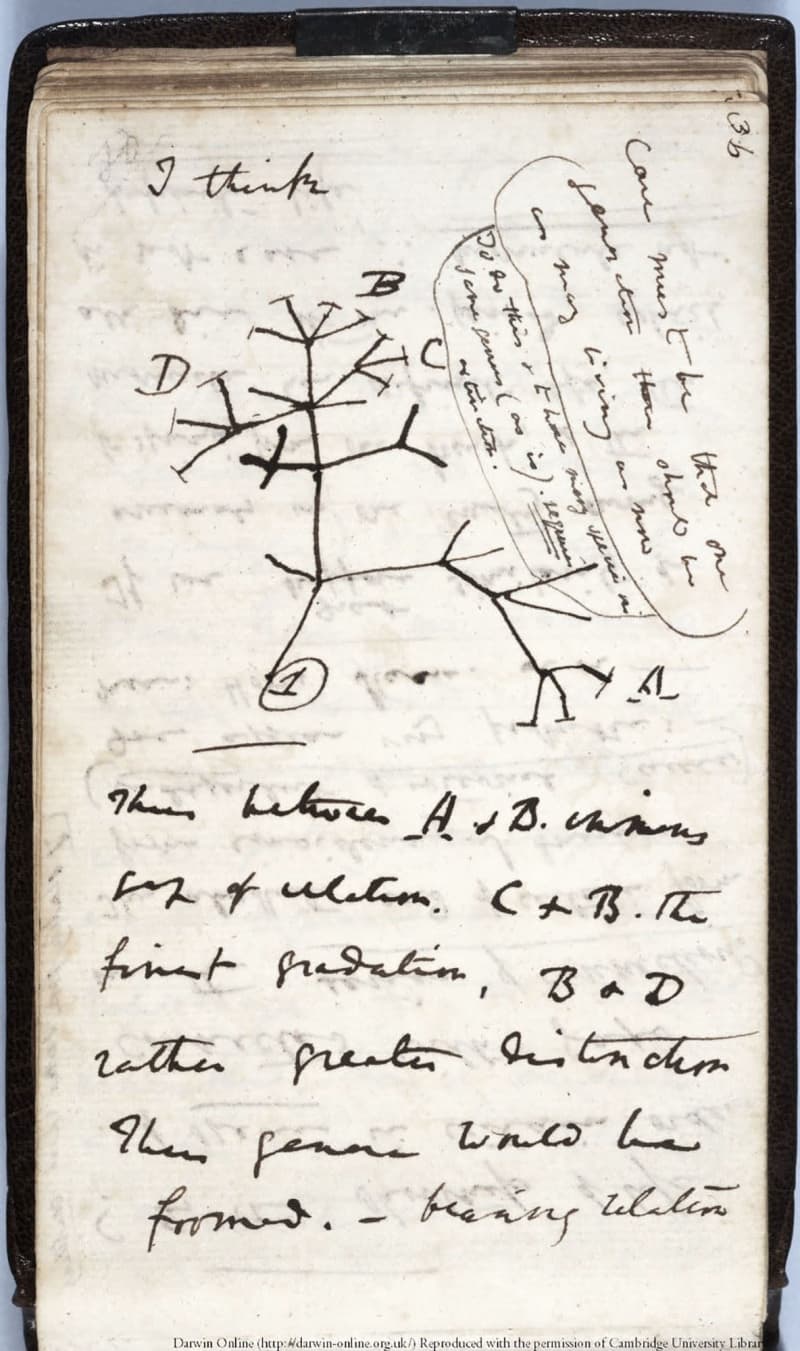 36
I think
Case must be that one
generation then should be
as many living as now
To do this & to have many species in
same genus (as is). requires
extinction.
B
C
D
A
1
Thus between A & B. immens
gap of relation. C & B. The
finest gradation, B & D
rather greater distinction
Thus genera would be
formed. – bearing relation
Darwin Online (http://darwin-online.org.uk/) Reproduced with the permission of Cambridge University Librar